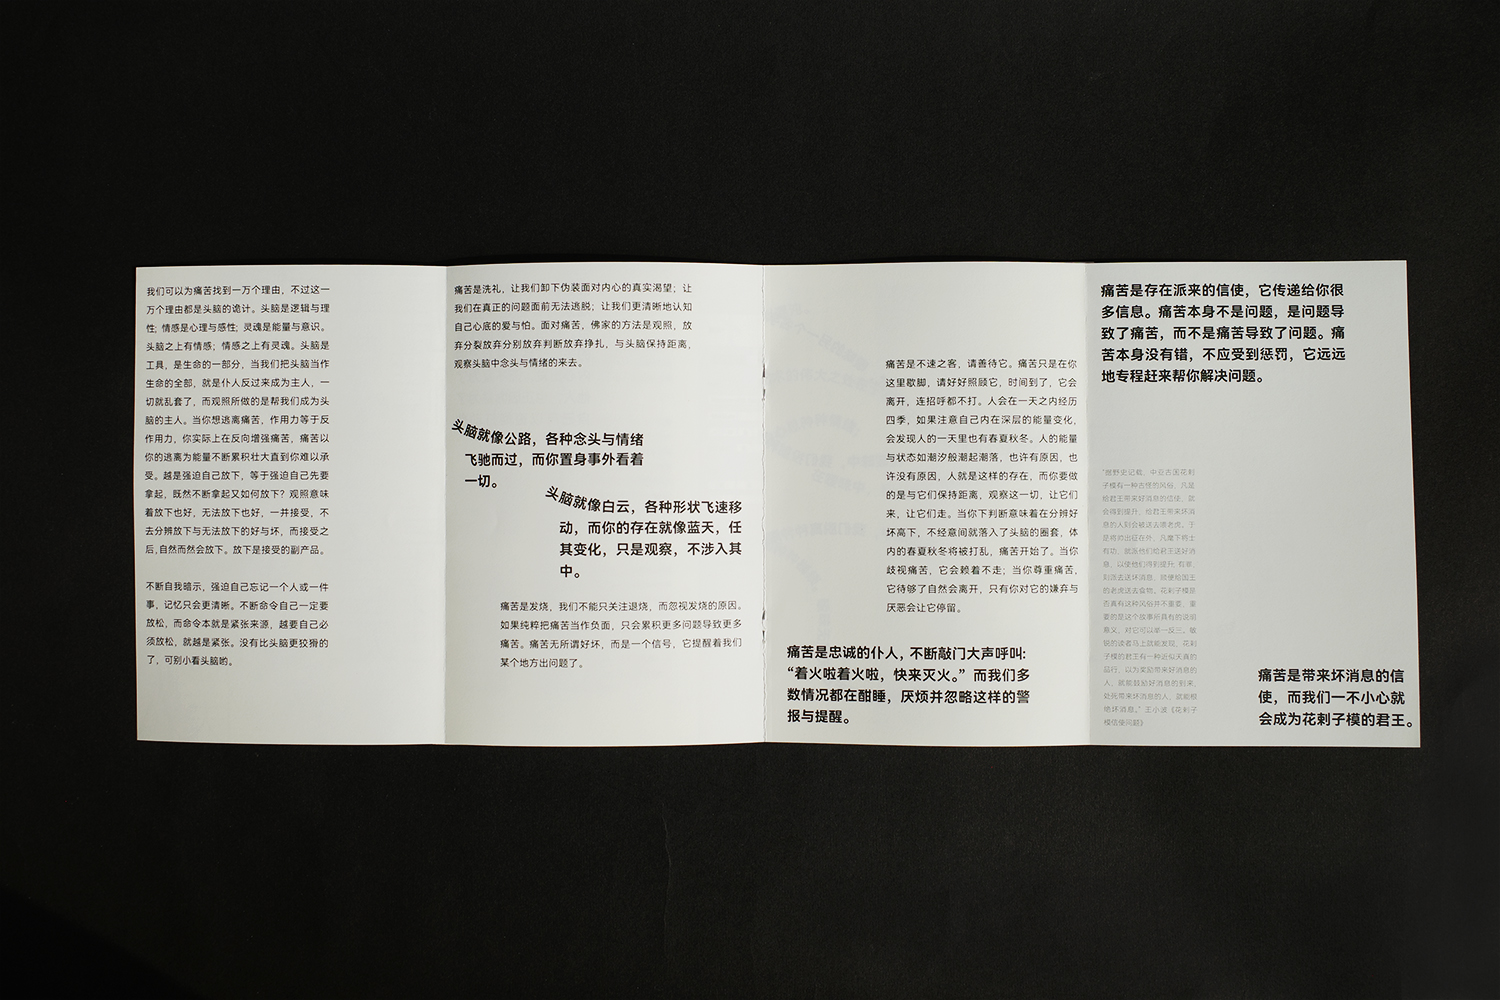 我们可以为痛苦找到一万个理由，不过这一
万个理由都是头脑的诡计。头脑是逻辑与理
性；情感是心理与感性；灵魂是能量与意识。
头脑之上有情感；情感之上有灵魂。头脑是
工具，是生命的一部分，当我们把头脑当作
生命的全部，就是仆人反过来成为主人，一
切就乱套了，而观照所做的是帮我们成为头
脑的主人。当你想逃离痛苦，作用力等于反
作用力，你实际上在反向增强痛苦，痛苦以
你的逃离为能量不断累积壮大直到你难以承
受。越是强迫自己放下，等于强迫自己先要
拿起，既然不断拿起又如何放下？观照意味
着放下也好，无法放下也好，一并接受，不
去分辨放下与无法放下的好与坏，而接受之
后，自然而然会放下。放下是接受的副产品。
不断自我暗示，强迫自己忘记一个人或一件
事，记忆只会更清晰。不断命令自己一定要
放松，而命令本就是紧张来源，越要自己必
须放松，就越是紧张。没有比头脑更狡猾的
了，可别小看头脑哟。
痛苦是洗礼，让我们卸下伪装面对内心的真实渴望；让
我们在真正的问题面前无法逃脱；让我们更清晰地认知
自己心底的爱与怕。面对痛苦，佛家的方法是观照，放
弃分裂放弃分别放弃判断放弃挣扎，与头脑保持距离，
观察头脑中念头与情绪的来去。
头脑就像公路，各种念头与情绪
飞驰而过，而你置身事外看着
一切。
头脑就像白云，各种形状飞速移
动，而你的存在就像蓝天，任
其变化，只是观察，不涉入其
中。
痛苦是发烧，我们不能只关注退烧，而忽视发烧的原因。
如果纯粹把痛苦当作负面，只会累积更多问题导致更多
痛苦。痛苦无所谓好坏，而是一个信号，它提醒着我们
某个地方出问题了。
痛苦是不速之客，请善待它。痛苦只是在你
这里歇脚，请好好照顾它，时间到了，它会
离开，连招呼都不打。人会在一天之内经历
四季，如果注意自己内在深层的能量变化，
会发现人的一天里也有春夏秋冬。人的能量
与状态如潮汐般潮起潮落，也许有原因，也
许没有原因，人就是这样的存在，而你要做
的是与它们保持距离，观察这一切，让它们
来，让它们走。当你下判断意味着在分辨好
坏高下，不经意间就落入了头脑的圈套，体
内的春夏秋冬将被打乱，痛苦开始了。当你
歧视痛苦，它会赖着不走；当你尊重痛苦，
它待够了自然会离开，只有你对它的嫌弃与
厌恶会让它停留。
痛苦是忠诚的仆人，不断敲门大声呼叫:
“着火啦着火啦，快来灭火。”而我们多
数情况都在酣睡，厌烦并忽略这样的警
报与提醒。
痛苦是存在派来的信使，它传递给你很
多信息。痛苦本身不是问题，是问题导
致了痛苦，而不是痛苦导致了问题。痛
苦本身没有错，不应受到惩罚，它远远
地专程赶来帮你解决问题。
“据野史记载，中亚古国花剌
子模有一种古怪的风俗，凡是
给君王带来好消息的信使，就
会得到提升，给君王带来坏消
息的人则会被送去喂老虎。于
是将帅出征在外，凡麾下将士
有功，就派他们给君王送好消
息，以使他们得到提升；有罪，
则派去送坏消息，顺便给国王
的老虎送去食物。花剌子模是
否真有这种风俗并不重要，重
要的是这个故事所具有的说明
意义，对它可以举一反三。敏
锐的读者马上就能发现，花剌
子模的君王有一种近似天真的
品行，以为奖励带来好消息的
人，就能鼓励好消息的到来，
处死带来坏消息的人，就能根
绝坏消息。”王小波《花剌子
模信使问题》
痛苦是带来坏消息的信
使，而我们一不小心就
会成为花剌子模的君王。